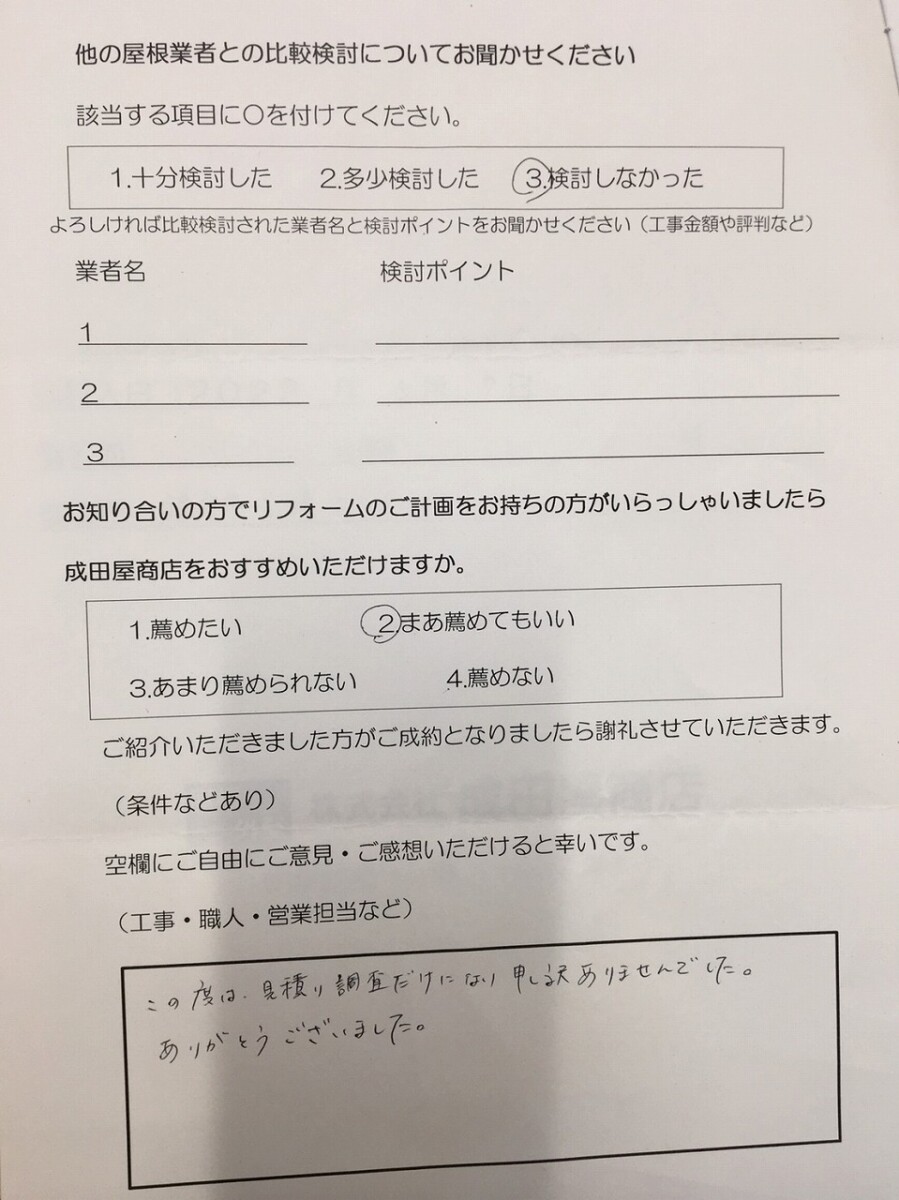 他の屋根業者との比較検討についてお聞かせください
該当する項目に〇を付けてください。
1.十分検討した 2.多少検討した 3.検討しなかった
よろしければ比較検討された業者名と検討ポイントをお聞かせください（工事金額や評判など）
業者名 検討ポイント
1
2
3
お知り合いの方でリフォームのご計画をお持ちの方がいらっしゃいましたら
成田屋商店をおすすめいただけますか。
1.薦めたい 2まあ薦めてもいい
3.あまり薦められない 4.薦めない
ご紹介いただきました方がご成約となりましたら謝礼させていただきます。
（条件などあり）
空欄にご自由にご意見・ご感想いただけると幸いです。
（工事・職人・営業担当など）
この度は、見積り調査だけになり申し訳ありませんでした。
ありがとうございました。